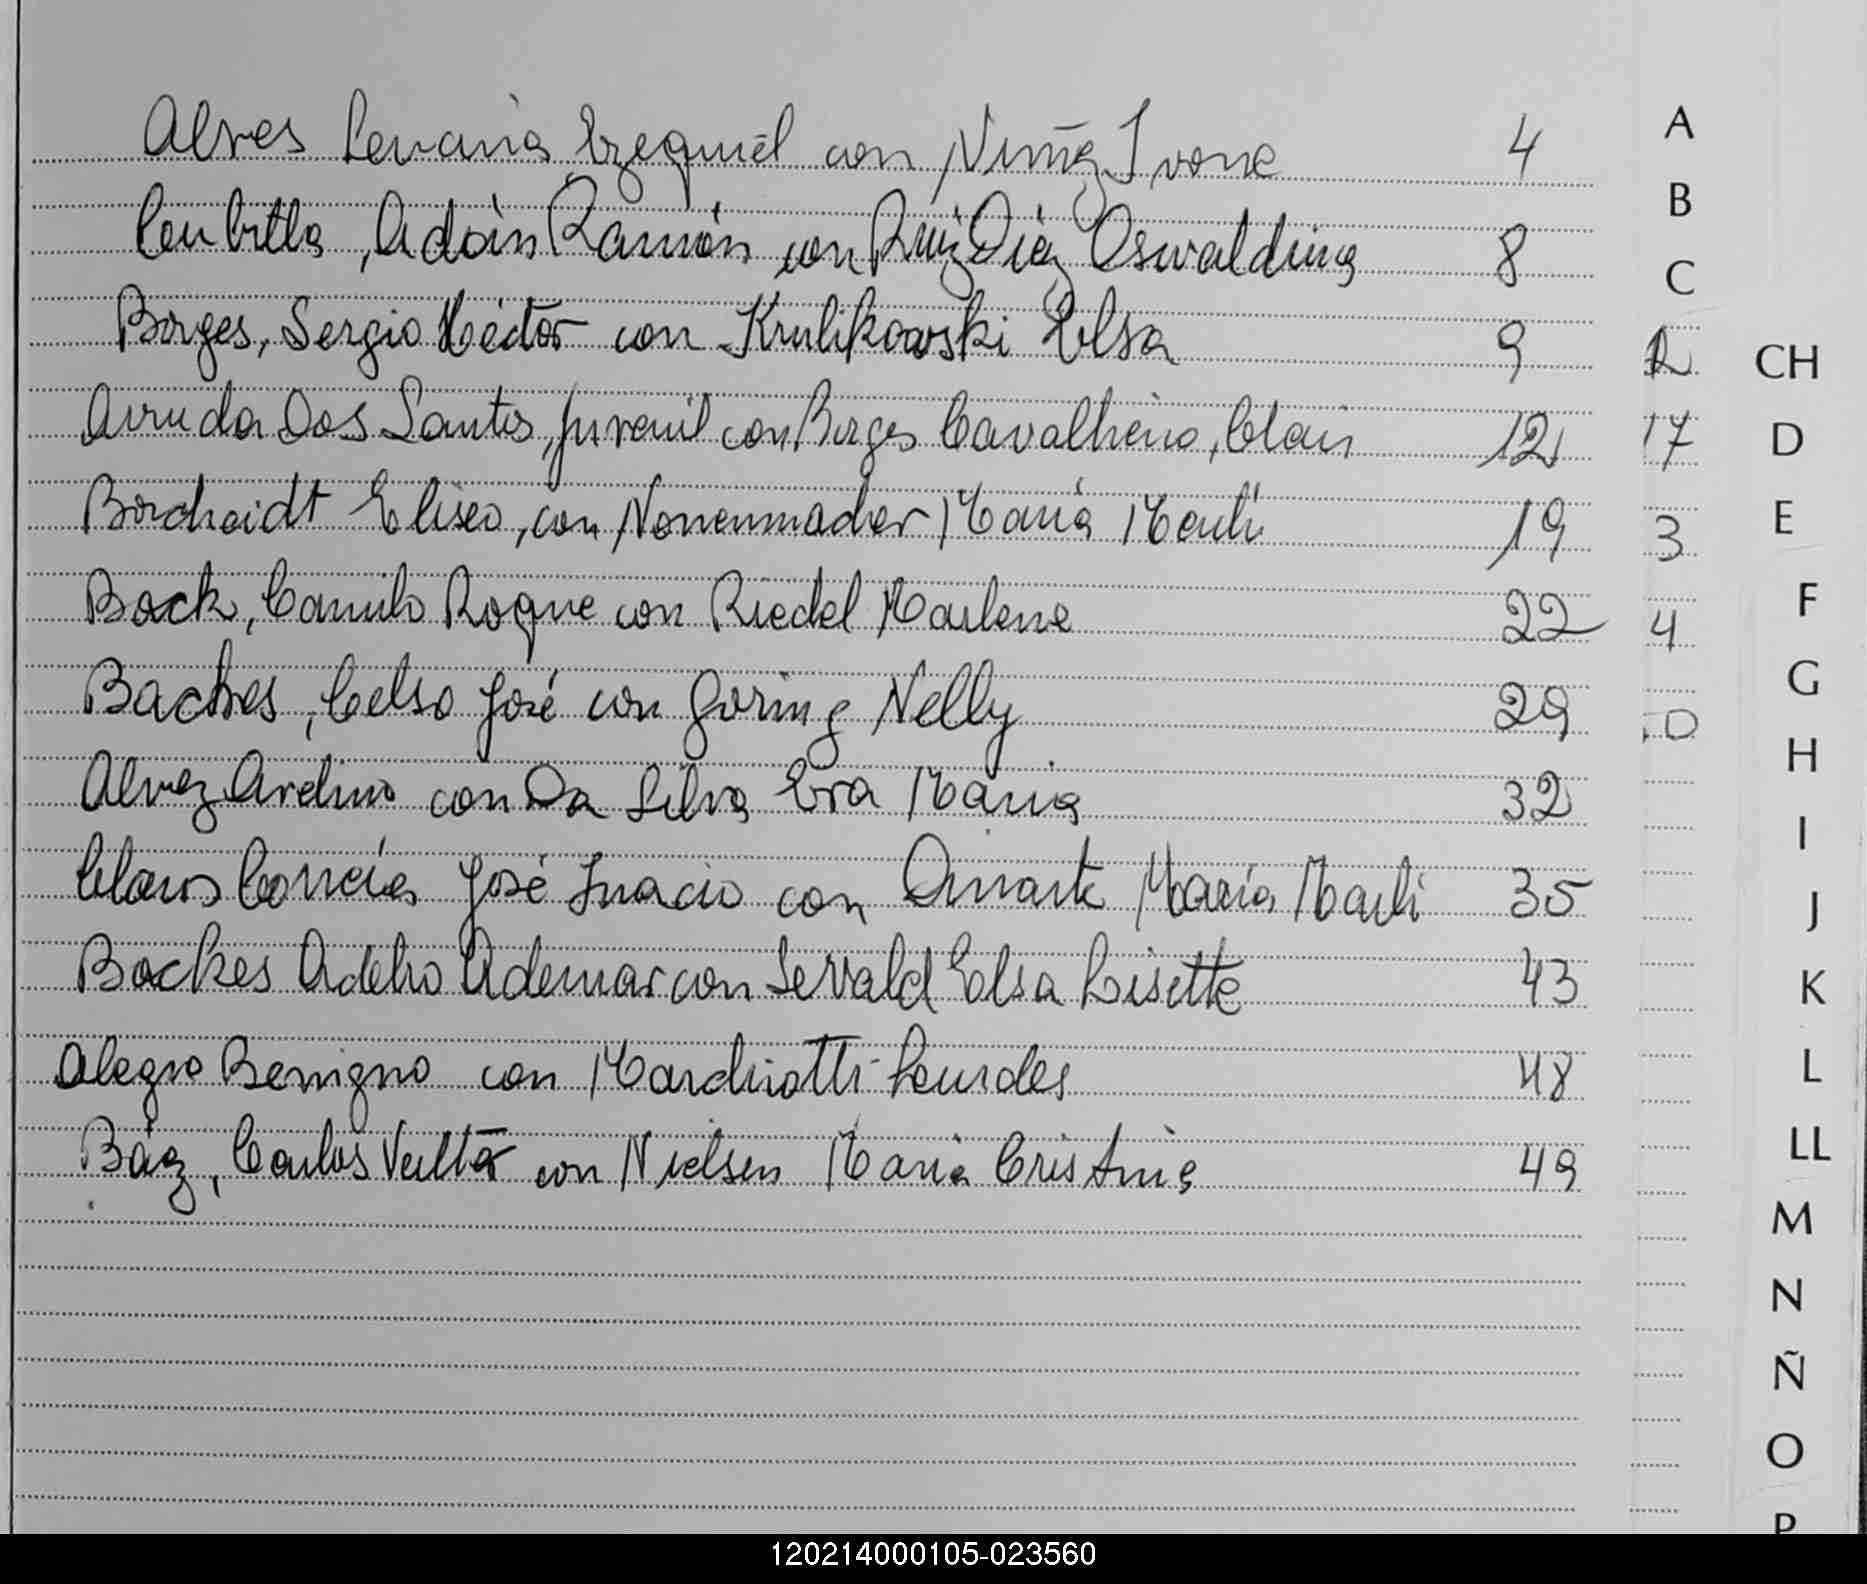 Alves Ezequiel con Nuñez Ivone 4
Adán Ramón con Ruiz Diaz Oswaldina 8
Borges, Sergio Héctor con Krulikowski Elsa 9
Arruda Dos Santos, Juvenil con Borges Cavalheiro, Clair 12
Borchardt Eliseo, con Nonenmacher Maria Marli 19
Bock, Camilo Roque con Riedel Marlene 22
Backes, Celso José con Goring Nelly 29
Alvez Avelino con Da Silva Eva Maria 32
Correia José Inacio con Duarte María Marli 35
Backes Adelio Ademar con Servald Elsa Lisette 43
Alegro Benigno con Marchiotti Lourdes 48
Báez, Carlos con Nielsen Maria Cristina 49
A
B
C
CH
17 D
3 E
4 F
G
H
I
J
K
L
LL
M
N
Ñ
O
P
120214000105-023560